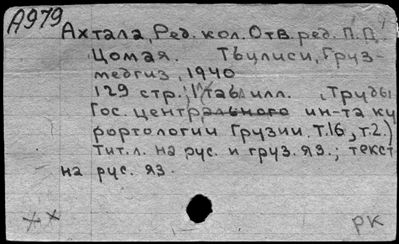 А979
Ахтала, Ред. кол. Отв. ред. П.Д.
Цомая. Тбилиси, Груз-
медгиз, 1940
129 стр.; 1 табл илл. (Труды
Гос. центрального ин-та ку
рортологии Грузии. т.16, т.2.)
Тит.л. на рус. и груз. яз.; текст
на рус. яз.
РК